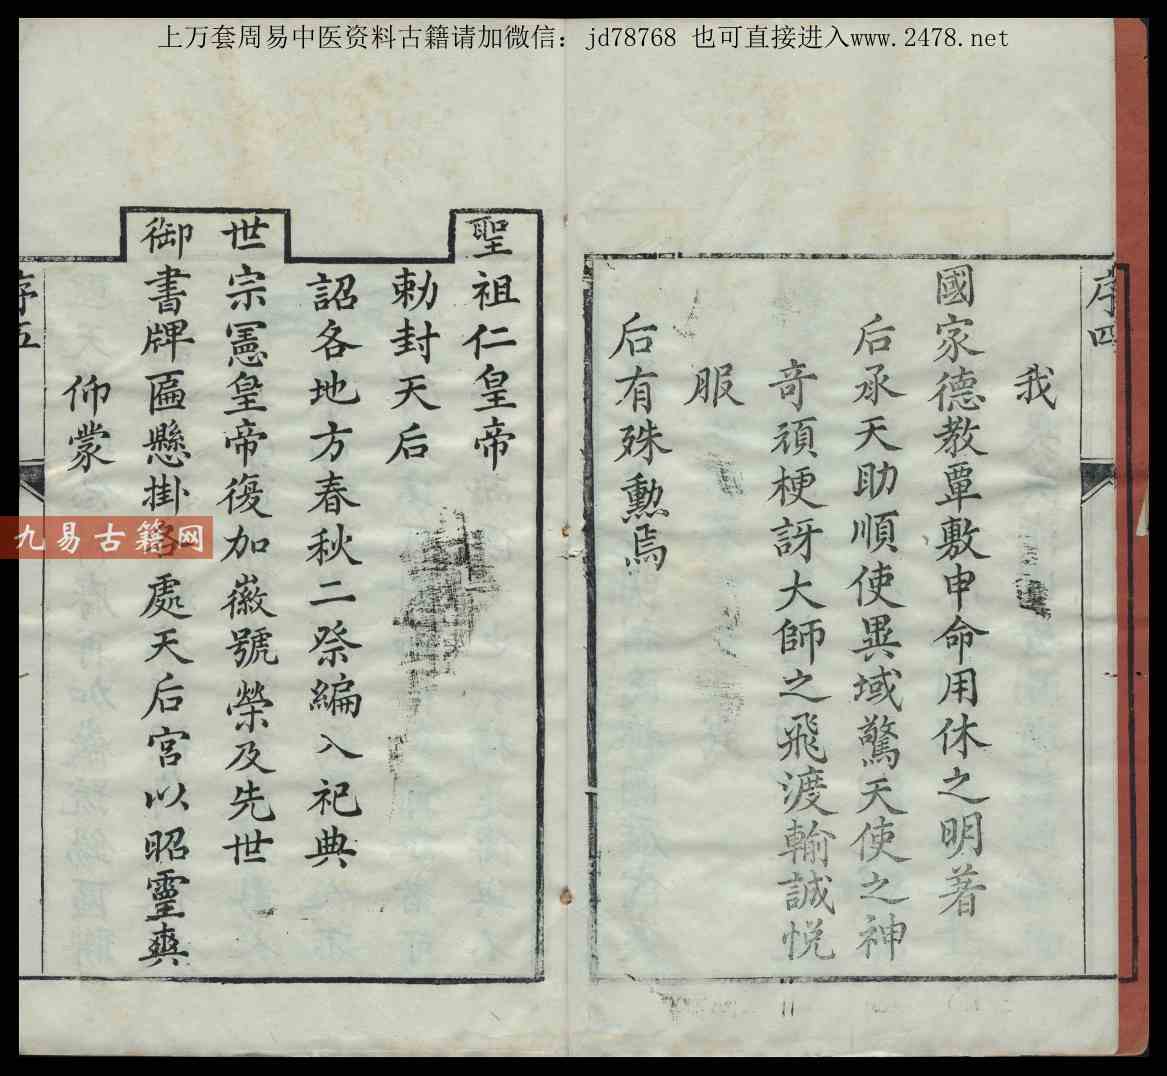 上万套周易中医资料古籍请加微信：jd78768 也可直接进入www.2478.net
序四
我
國家德教覃敷申命用休之明著
后承天助順使異域驚天使之神
奇頑梗訝大師之飛渡輸誠悅
服
后有殊勲焉
聖祖仁皇帝
勅封天后
詔各地方春秋二祭編入祀典
世宗憲皇帝復加徽號榮及先世
御書牌匾懸掛各處天后宮以昭靈爽
仰蒙
序五
九易古籍网